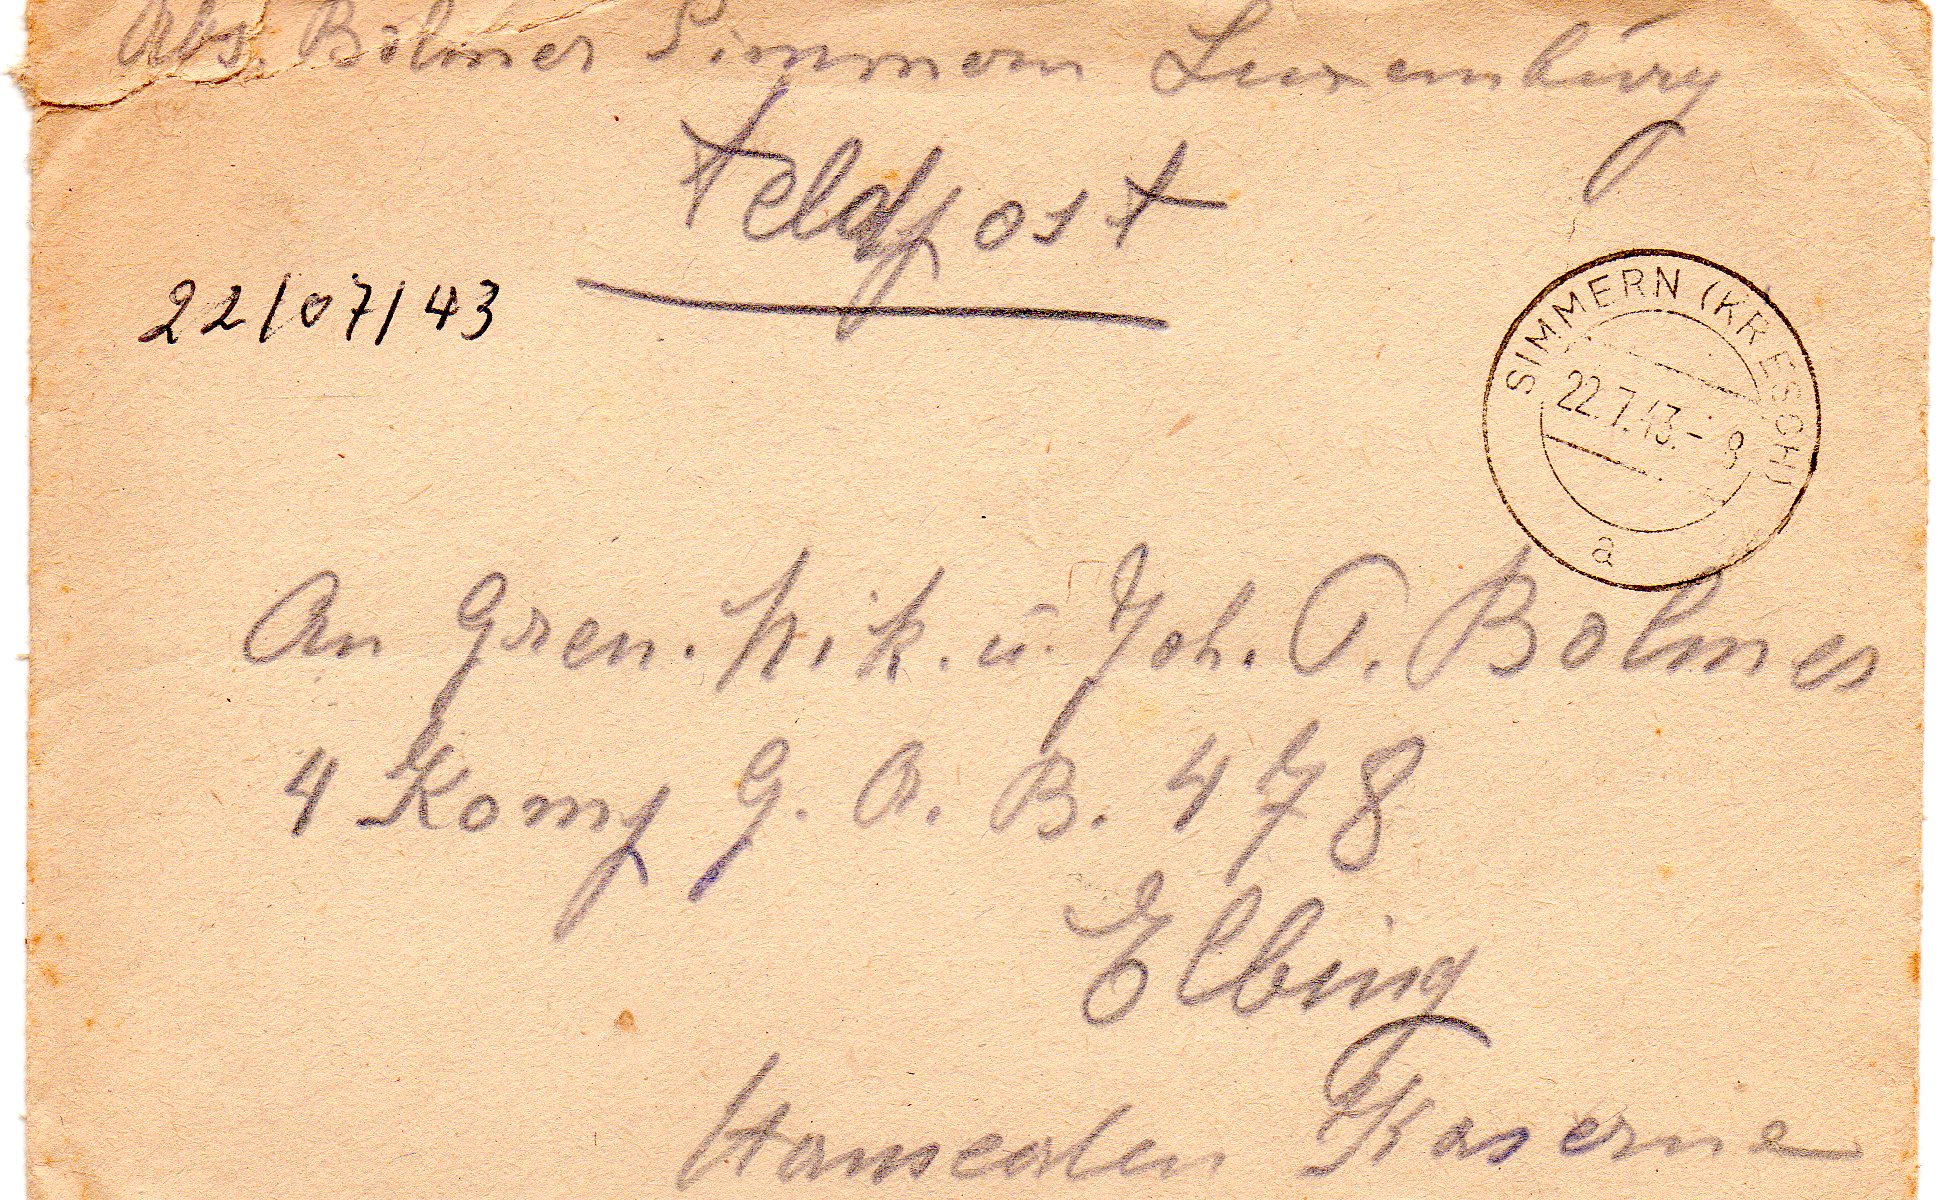 Abs. Bolmer Simmern Luxemburg
Feldpost
22/07/43
SIMMERN (KR ESCH)
22.7.43.- 8
a
An Gren. Nik. u. Joh. P. Bolmer
4 Komp G. A. B. 478
Elbing
Hanseaten Kaserne